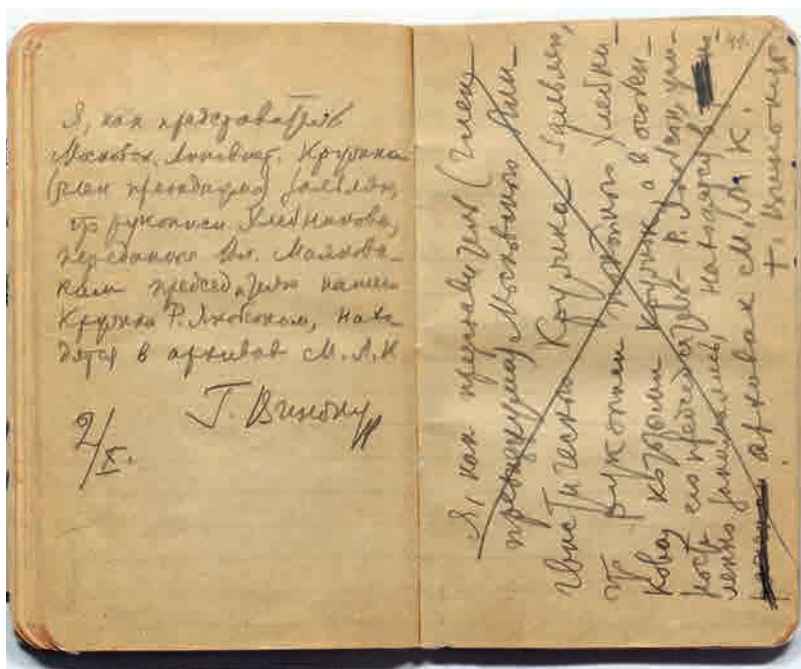 Я, как представитель
Московск. Лингвист. Кружка
(член президиума) заявляю,
что рукописи Хлебникова,
переданные Вл. Маяковс-
ким председателю нашего
Кружка Р. Якобсоном, нахо-
дятся в архивах М.Л.К
Г. Винокур
2/X.
Я, как представитель (член
президиума) Московского Лин-
гвистического Кружка заявляю,
что рукописи покойного Хлебни-
кова, которыми Кружок, а в особен-
ности его председатель - Р. Якобсон, уси-
ленно занимались, находятся в
архивах М.Л.К.
Г. Винокур